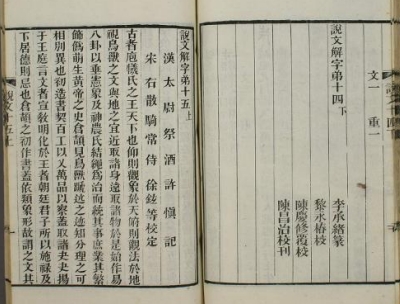 文一 重一
說文解字弟十四下
李承緒篆
黎永椿校
陳慶修覆校
陳昌治校刊
說文解字弟十五上
漢太尉祭酒許愼記
宋右散騎常侍徐鉉等校定
古者庖犧氏之王天下也仰則觀象於天俯則觀法於地
視鳥獸之文與地之宜近取諸身遠取諸物於是始作易
八卦以垂憲象及神農氏結繩爲治而統其事庶業其繁
飾僞萌生黃帝之史倉頡見鳥獸蹏迒之迹知分理之可
相別異也初造書契百工以乂萬品以察蓋取諸夬夬揚
于王庭言文者宣敎明化於王者朝廷君子所以施祿及
下居德則忌也倉頡之初作書蓋依類象形故謂之文其
說文十五上